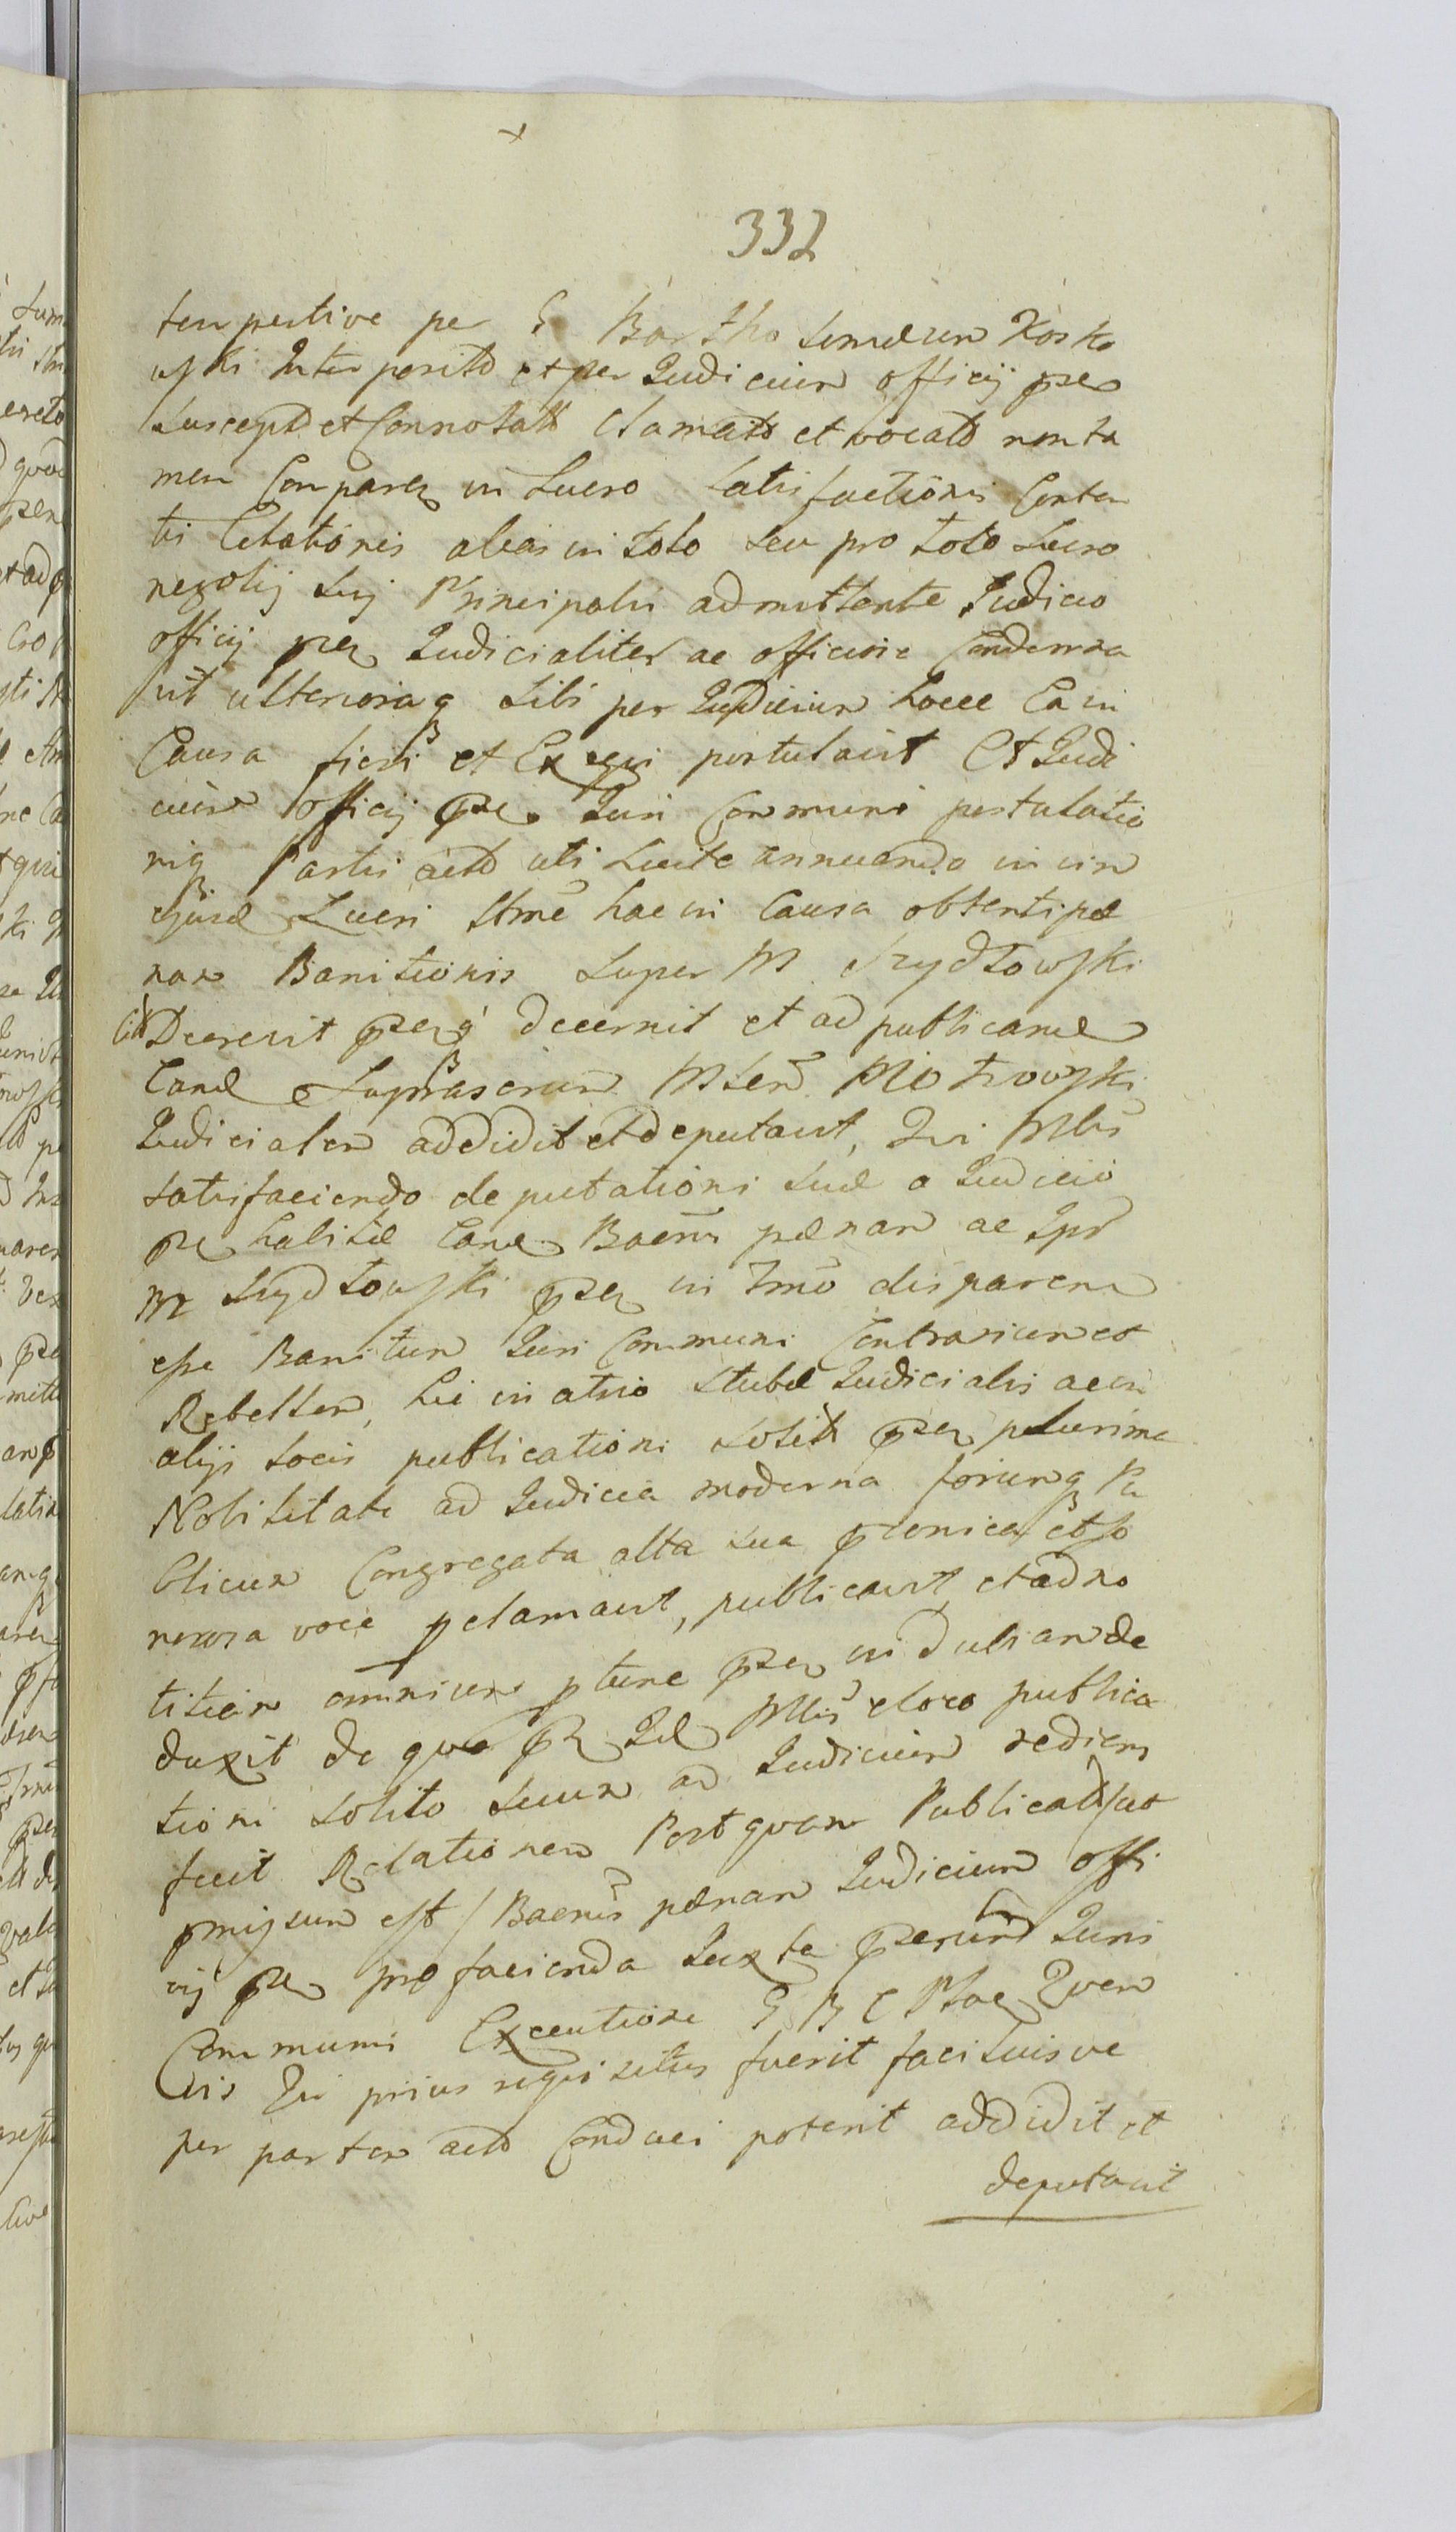 332
tempestive per G Bartholomæum Kosko
wski Interposito et per Judicium officij pse
suscepto et Connotato Clamato et vocato non ta
men Comparen in Lucro satisfactionis Conten
tis Citationis alias in toto seu pro toto Lucro
negotij sui Principalis admittente Judicio
officij psen Judicialiter ac officiose Condemna
vit ulterioraq sibi per Judicium hocce Ea in
Causa fieri et Exequi postulavit Et Judi
cium officij pse Juri Communi postulatio
niq Partis acto uti Juste annuendo in vim
ejusd Lucri Itme hac in Causa obtenti pœ
nam Banitionis super M Szydłowski
Cito Decrevit psen decernit et ad publicand
eand suprascrium Mlem Piotrowski
Judicialem addidit et deputavit, Qui Mlis
satisfaciendo deputationi suæ a Judicio
pse habitæ eand Baenis pœnam ac Ipm
M Szydłowski psen in Tmo disparem
esse Banitum Juri Communi Contrarium et
Rebellem, hic in atrio stubæ Judicialis ac in
alijs locis publicationi solitis psen plurima
Nobilitate ad Judicia moderna forumq Pu
blicum Congregata alta sua præconica et so
nora voce pclamavit, publicavit, et ad no
titiam omnium ptune psen in dubiam de
duxit de quo Id Mlis e loco publica
tioni solito suum ad Judicium rediens
fecit Relationem Postquam Publicatam ut
pmissum est / Baenis pœnam Judicium offi
cij pse pro facienda Juxta pserum Juris
Communi Executione G B C Plac Quem
vis Qui prius requisitus fuerit facilius ve
per partem acto Conduci poterit addidit et
deputavit